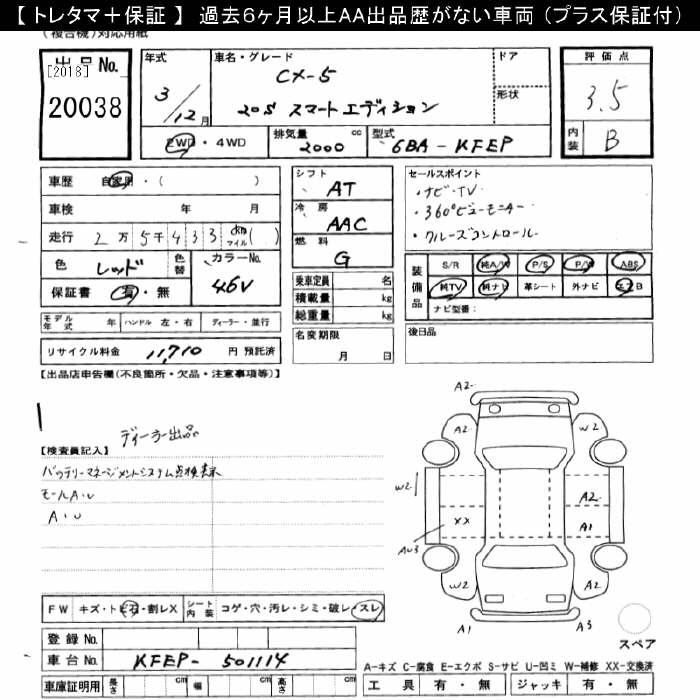 【 トレタマ＋保証 】 過去６ヶ月以上ＡＡ出品歴がない車両 （プラス保証付）
(複合機)対応用紙
出品 No.
[2018]
20038
年式
3/12月
車名・グレード
CX-5
20S スマートエディション
ドア
形状
2WD・4WD
排気量
2000 cc
型式
6BA-KFEP
評価点
3.5
内装
B
車歴 自家用・( )
車検 年 月
走行 2万5千433 km マイル ( )
色 レッド
色替
カラーNo.
46V
保証書 有・無
モデル年式 年 ハンドル 左・右 ディーラー・並行
リサイクル料金 11,710 円 預託済
シフト
AT
冷房
AAC
燃料
G
乗車定員 名
積載量 kg
総重量 kg
名変期限
月 日
セールスポイント
・ナビ・TV
・360°ビューモニター
・クルーズコントロール
装備品
S/R 純A/W P/S P/W ABS
純TV 純ナビ 革シート 外ナビ エアB
ナビ型番:
後日品
【出品店申告欄(不良箇所・欠品・注意事項等)】
ディーラー出品
【検査員記入】
バッテリーマネージメントシステム点検表示
モールA・U
A・U
A2
A2
W2
W2
A2
XX
A1
AU3
W2
A2
A1
A3
スペア
FW キズ・トビ石・割レX
シート内装 コゲ・穴・汚レ・シミ・破レ・スレ
登録 No.
車台 No. KFEP-501114
車庫証明用 長さ cm 幅 cm 高さ cm
A-キズ C-腐食 E-エクボ S-サビ U-凹ミ W-補修 XX-交換済
工具 有・無 ジャッキ 有・無